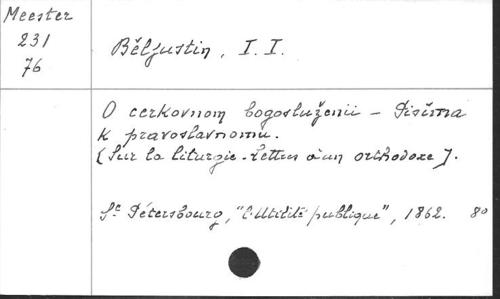 Meester
231
76
Běljustin, I. I.
O cerkovnom bogosluženii - Pisíma
k pravoslavnomu.
[Sur la liturgie - Lettres à un orthodoxe].
St Pétersbourg, "l'Utilité publique", 1862. 80